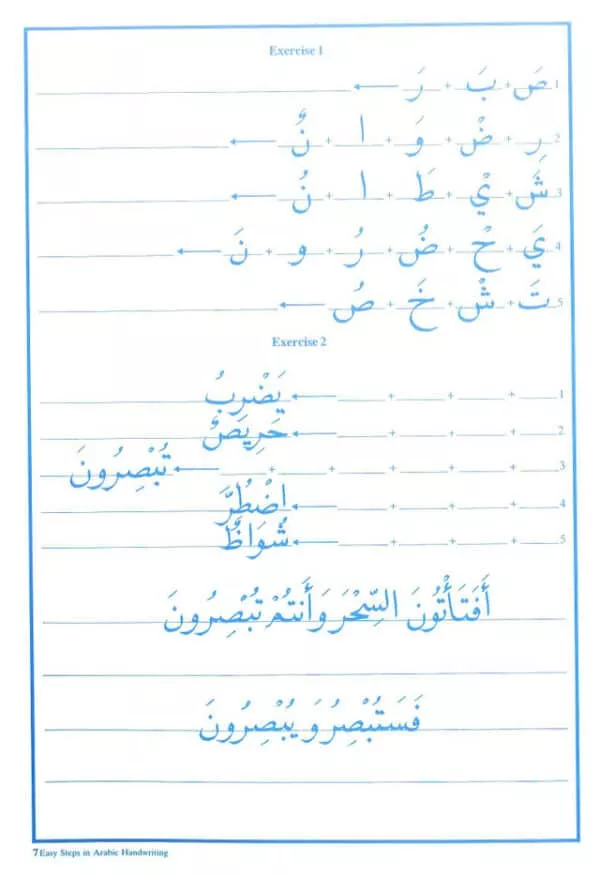 Exercise 1
1 صَ + بَ + رَ ←
2 رِ + ضْ + وَ + ا + نٌ ←
3 شَ + يْ + طَ + ا + نُ ←
4 يَ + حْ + ضُ + رُ + و + نَ ←
5 تَ + شْ + خَ + صُ ←
Exercise 2
1 + + + ← يَضْرِبُ
2 + + + ← حَرِيصٌ
3 + + + + + ← تُبْصِرُونَ
4 + + + ← اضْطُرَّ
5 + + + ← شُوَاظٌ
أَفَتَأْتُونَ السِّحْرَ وَأَنتُمْ تُبْصِرُونَ
فَسَتُبْصِرُ وَيُبْصِرُونَ
7 Easy Steps in Arabic Handwriting